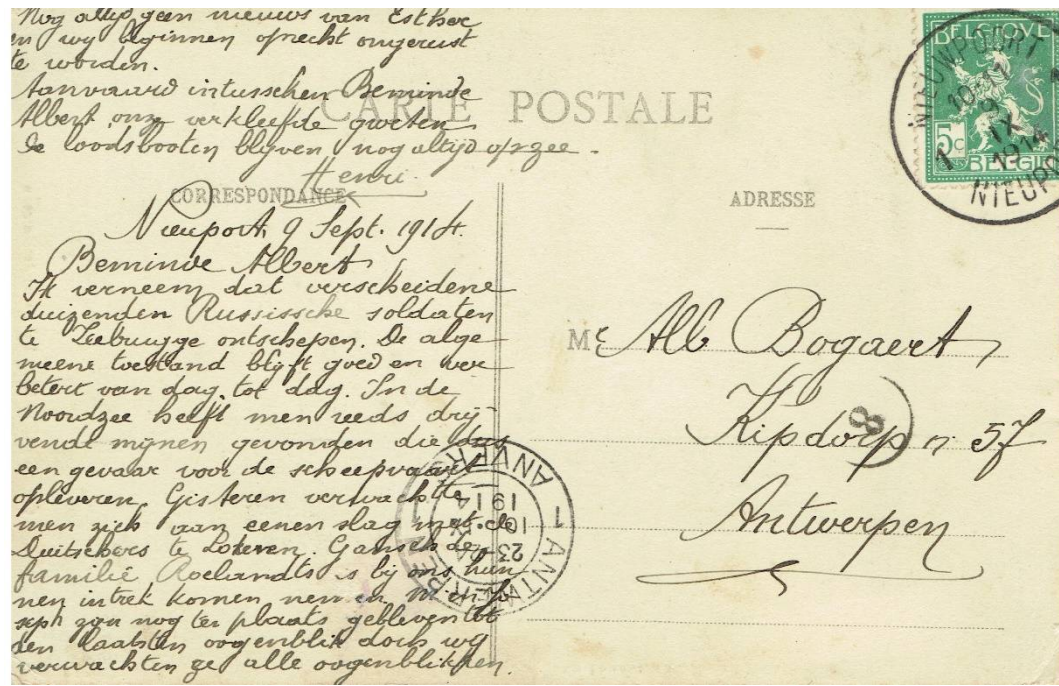 Nog altijd geen nieuws van Esther
en wy beginnen oprecht ongerust
te worden.
Aanvaard intusschen Beminde
Albert onze verkleefde groeten
De loodsbooten blyven nog altijd op zee.
Henri
CARTE POSTALE
CORRESPONDANCE
Nieuport, 9 Sept. 1914.
Beminde Albert,
Ik verneem dat verscheidene
duizenden Russissche soldaten
te Zeebrugge ontschepen. De alge-
meene toestand blyft goed en ver
betert van dag tot dag. In de
Noordzee heeft men reeds drij-
vende mynen gevonden die dus
een gevaar voor de scheepvaart
opleveren. Gisteren verwachtte
men zich aan eenen slag met de
Duitschers te Lokeren. Gansch de
familie Roelandts is by ons hun
nen intrek komen nemen M. en Jo
seph zyn nog ter plaats gebleven tot
den laatsten oogenblik doch wy
verwachten ze alle oogenblikken.
ADRESSE
Mr Alb Bogaert
Kipdorp n: 57
Antwerpen
8
BELGIQUE
5c
BELGIË
NIEUWPOORT
10-11
9
IX
1914
1
NIEUPORT
1 ANTWERPEN
1 ANVERS
23-24
10
IX
1914